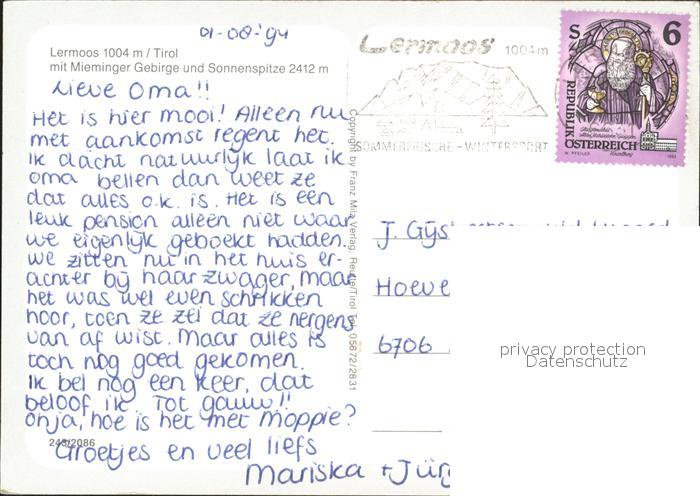 01-08-'94
Lermoos 1004 m / Tirol
mit Mieminger Gebirge und Sonnenspitze 2412 m
Lieve Oma!!
Het is hier mooi! Alleen nu
met aankomst regent het.
Ik dacht natuurlijk laat ik
oma bellen dan weet ze
dat alles o.k. is. Het is een
leuk pension alleen niet waar
we eigenlijk geboekt hadden.
we zitten nu in het huis er-
achter bij haar zwager, maar
het was wel even schrikken
hoor, toen ze zei dat ze nergens
van af wist. Maar alles is
toch nog goed gekomen.
Ik bel nog een keer, dat
beloof ik. Tot gauw!!
Ohja, hoe is het met Moppie?
Groetjes en veel liefs
Mariska + Jür
243/2086
Copyright by Franz Milz Verlag, Reutte/Tirol Tel. 05672/2831
Lermoos 1004 m
SOMMERFRISCHE - WINTERSPORT
S 6
REPUBLIK
ÖSTERREICH
J. Gijs
Hoeve
6706
privacy protection
Datenschutz